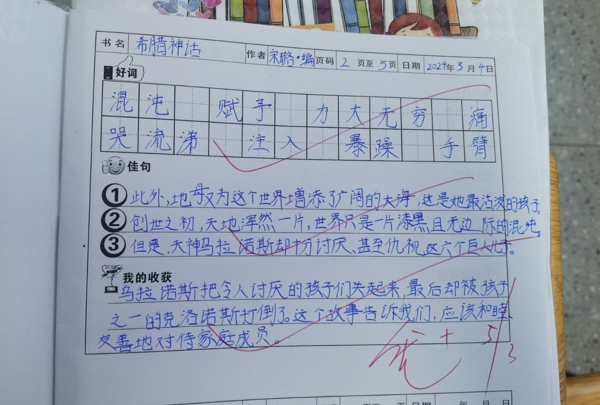 书名 希腊神话 作者 宋璐·编 页码 2 页至 5 页 日期 2024年3月4日
好词
混沌 赋予 力大无穷 痛
哭流涕 注入 暴躁 手臂
佳句
① 此外,地母又为这个世界增添了广阔的大海,这是她最活泼的孩子。
② 创世之初,天地浑然一片,世界只是一片漆黑,且无边际的混沌。
③ 但是,天神乌拉诺斯却十分讨厌,甚至仇视这六个巨人儿。
我的收获
乌拉诺斯把令人讨厌的孩子们关起来,最后却被孩子
之一的克洛诺斯打倒了。这个故事告诉我们,应该和睦
友善地对待家庭成员。
优+ 5/3